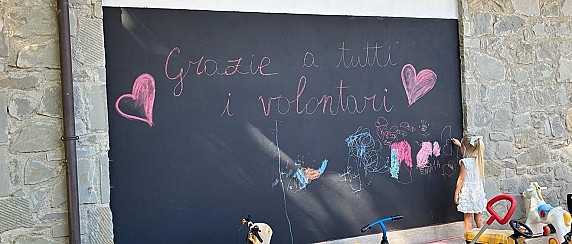 Grazie a tutti
i volontari